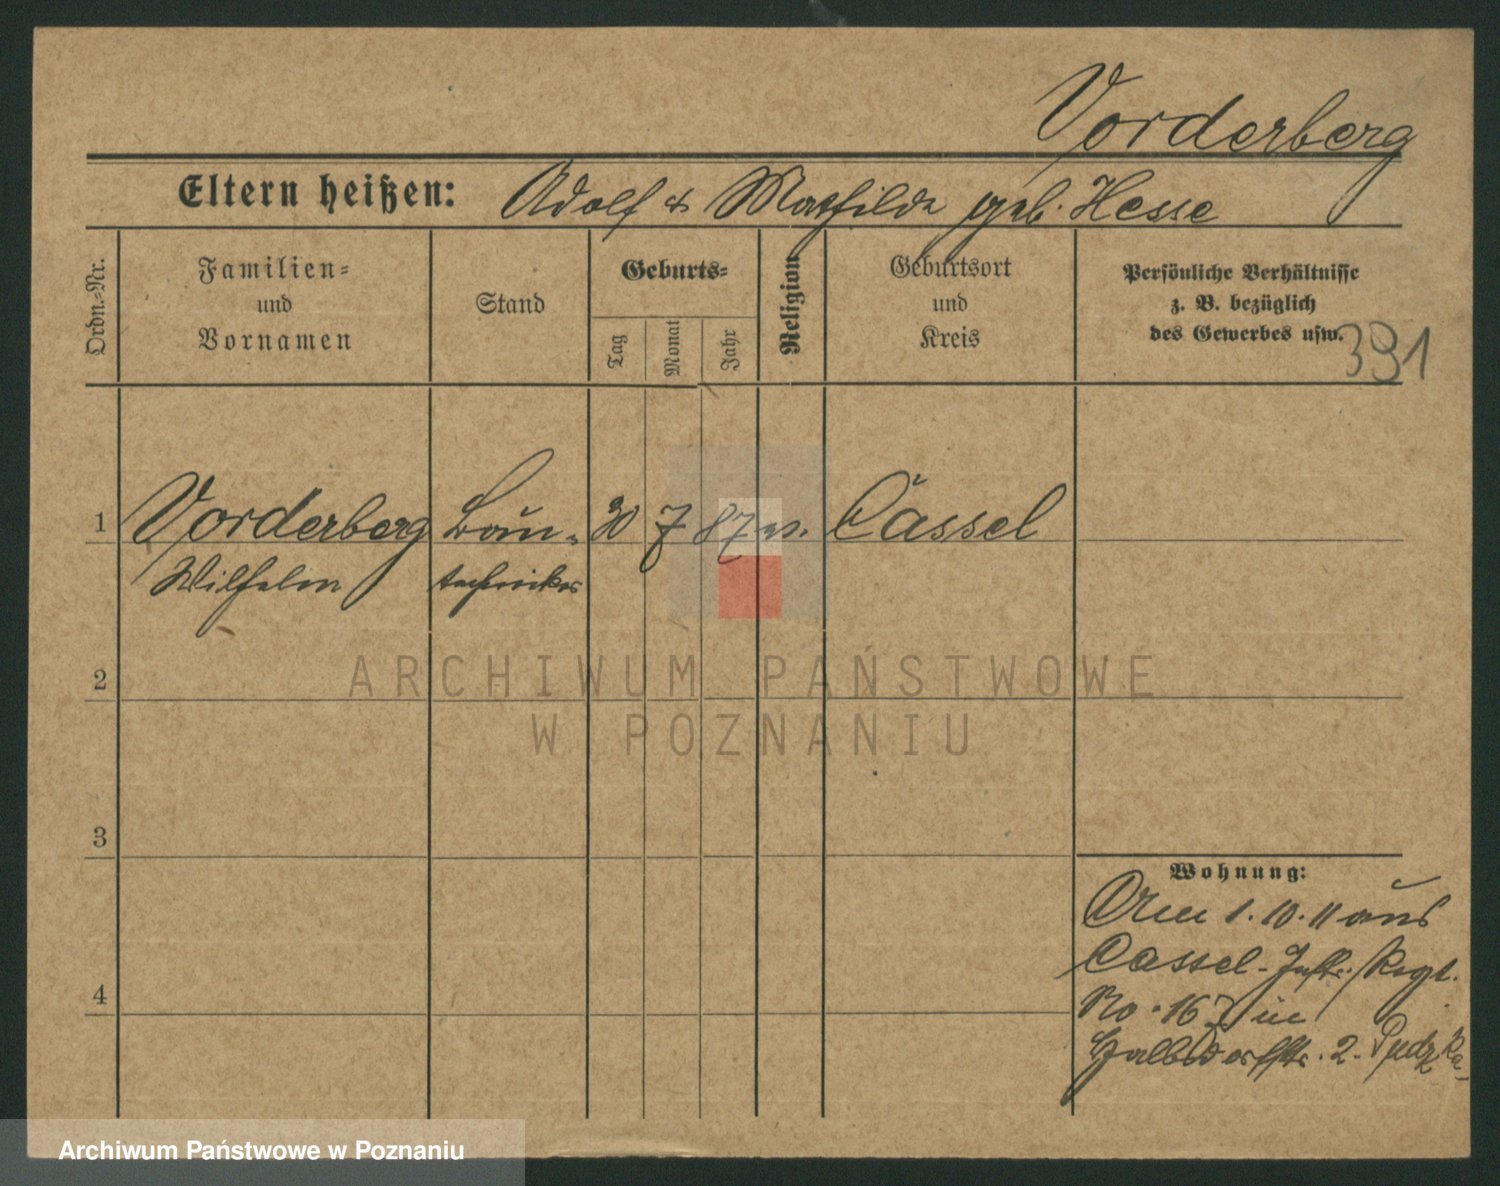 Vorderberg
Eltern heißen: Adolf & Mathilde geb. Hesse
Ordn.-Nr.
Familien-
und
Vornamen
Stand
Geburts-
Tag
Monat
Jahr
Religion
Geburtsort
und
Kreis
Persönliche Verhältnisse
z. B. bezüglich
des Gewerbes usw.
391
1 Vorderberg Bau- 30 7 87 ev. Cassel
Wilhelm techniker
2
ARCHIWUM PAŃSTWOWE
W POZNANIU
3
Wohnung:
Am 1.10.11 aus
Cassel - Inftr. Regt.
4
No. 167 in
Halbdorfstr. 2.
Archiwum Państwowe w Poznaniu